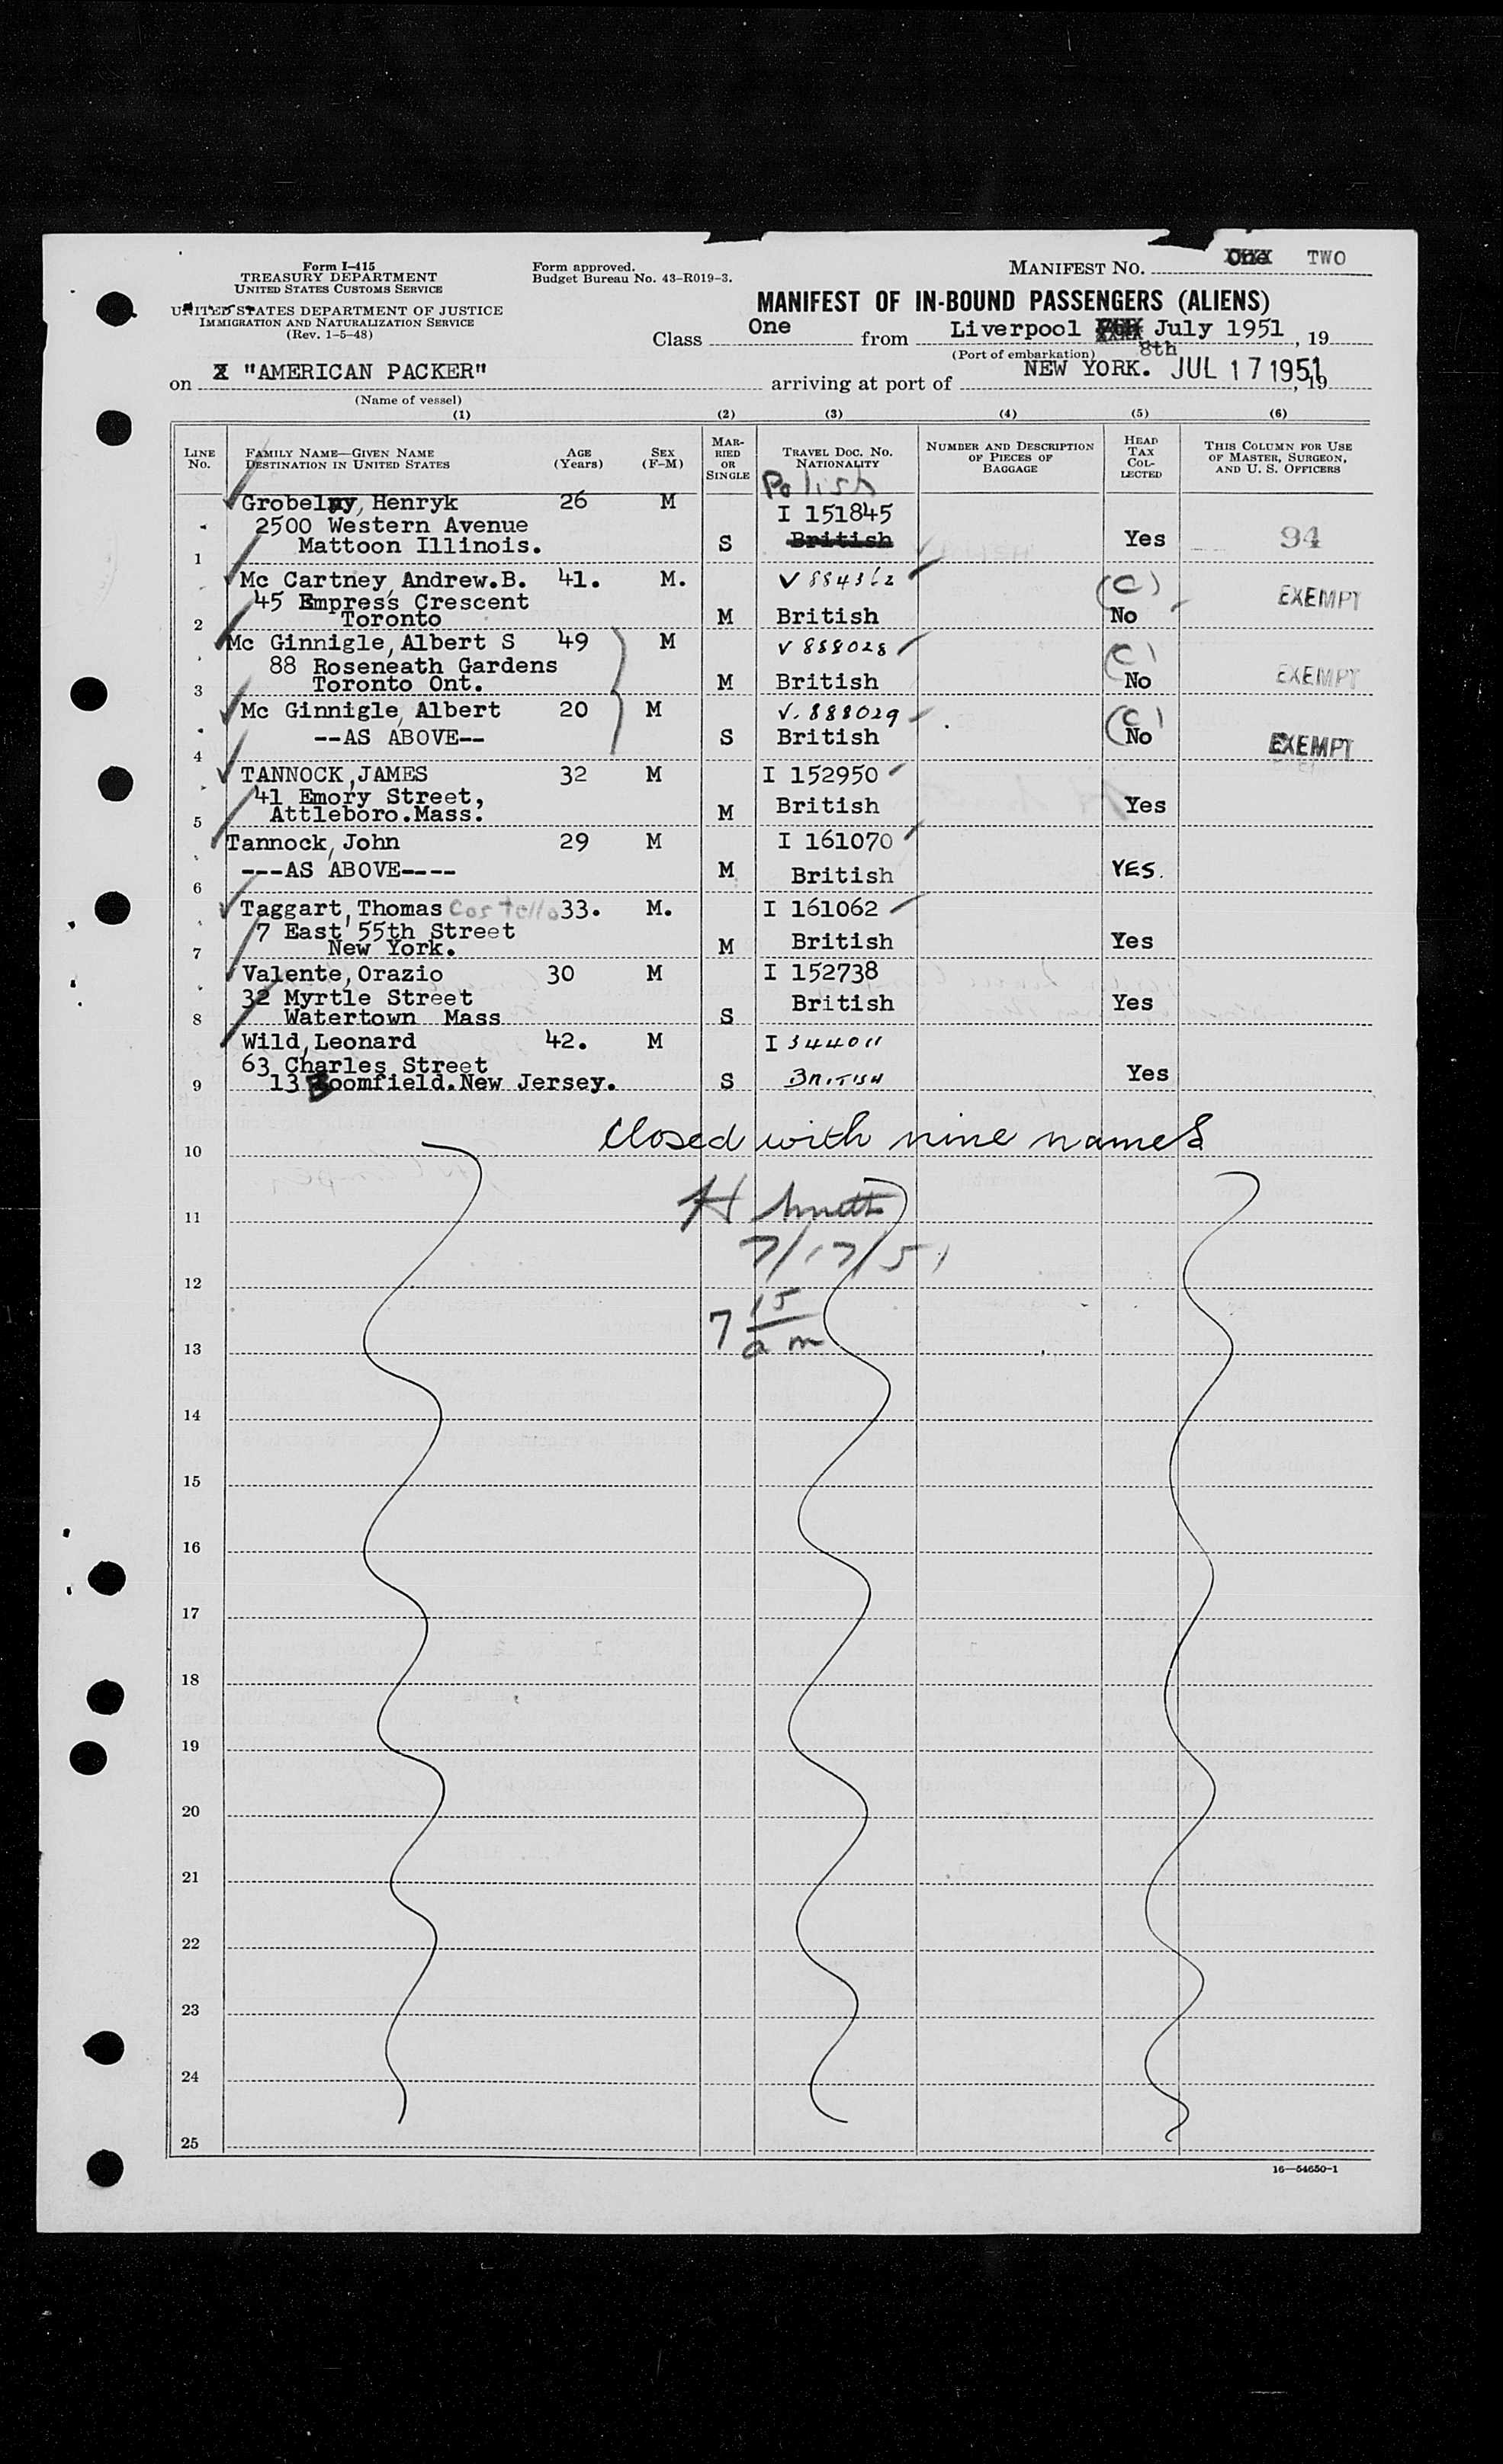 Form I-415
TREASURY DEPARTMENT
UNITED STATES CUSTOMS SERVICE
UNITED STATES DEPARTMENT OF JUSTICE
IMMIGRATION AND NATURALIZATION SERVICE
(Rev. 1-5-48)
Form approved.
Budget Bureau No. 43-R019-3.
MANIFEST No. One TWO
MANIFEST OF IN-BOUND PASSENGERS (ALIENS)
Class One from Liverpool July 1951, 19
(Port of embarkation) 8th
on "AMERICAN PACKER" arriving at port of NEW YORK. JUL 17 1951, 19
(Name of vessel)
(1) (2) (3) (4) (5) (6)
LINE No. FAMILY NAME—GIVEN NAME DESTINATION IN UNITED STATES AGE (Years) SEX (F-M) MARRIED OR SINGLE TRAVEL DOC. No. NATIONALITY NUMBER AND DESCRIPTION OF PIECES OF BAGGAGE HEAD TAX COLLECTED THIS COLUMN FOR USE OF MASTER, SURGEON, AND U. S. OFFICERS
Polish
Grobelny, Henryk 26 M I 151845
2500 Western Avenue
1 Mattoon Illinois. S British Yes 94
Mc Cartney, Andrew.B. 41. M. V 884362 (C) EXEMPT
45 Empress Crescent
2 Toronto M British No
Mc Ginnigle, Albert S 49 M V 888028 (C)
88 Roseneath Gardens EXEMPT
3 Toronto Ont. M British No
Mc Ginnigle, Albert 20 M V. 888029 (C)
4 --AS ABOVE-- S British No EXEMPT
TANNOCK, JAMES 32 M I 152950
41 Emory Street,
5 Attleboro.Mass. M British Yes
Tannock, John 29 M I 161070
6 ---AS ABOVE---- M British YES.
Taggart, Thomas Costello 33. M. I 161062
7 East 55th Street
7 New York. M British Yes
Valente, Orazio 30 M I 152738
32 Myrtle Street
8 Watertown Mass S British Yes
Wild, Leonard 42. M I 344011
63 Charles Street
9 13 Boomfield.New Jersey. S BRITISH Yes
Closed with nine names
10
11
7/17/51
12
7 15 am
13
14
15
16
17
18
19
20
21
22
23
24
25
16—54650-1